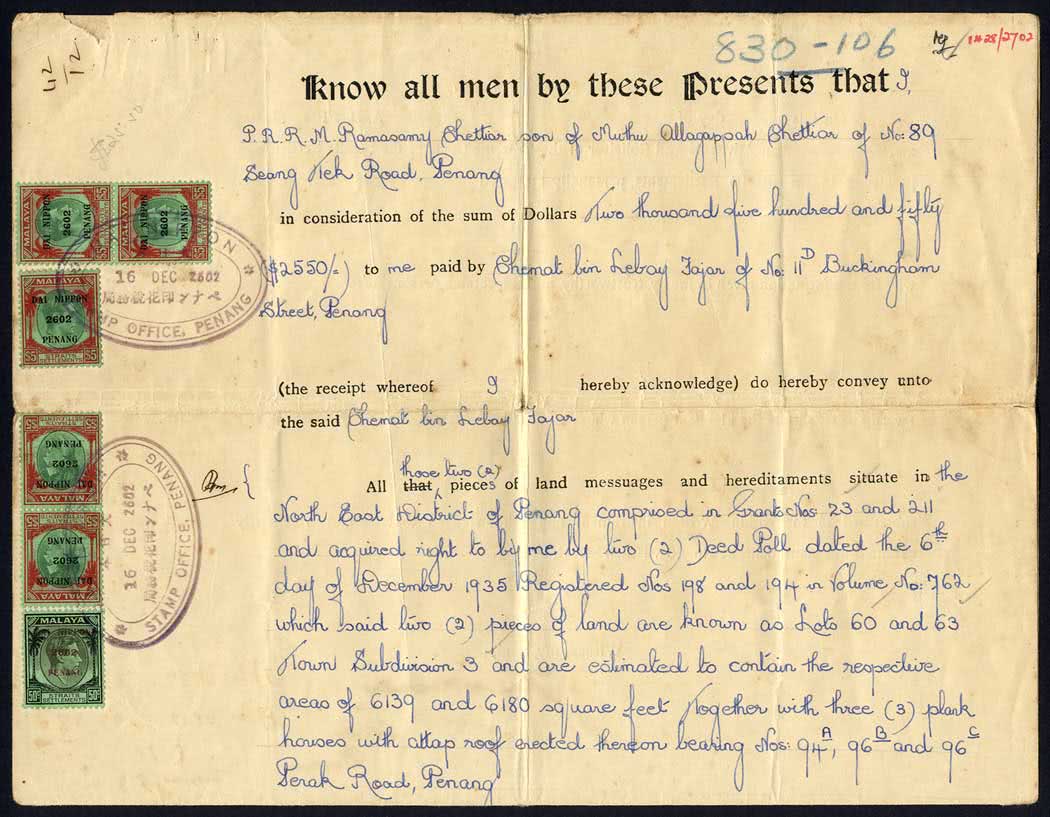 830-106
1428/2702
42
12
Know all men by these Presents that I,
P.R.R.M. Ramasamy Chettiar son of Muthu Allagappah Chettiar of No: 89
Seang Tek Road, Penang
in consideration of the sum of Dollars Two thousand five hundred and fifty
($2550/=) to me paid by Chemat bin Lebay Tajar of No: 11D Buckingham
Street, Penang
(the receipt whereof I hereby acknowledge) do hereby convey unto
the said Chemat bin Lebay Tajar
those two (2)
All that pieces of land messuages and hereditaments situate in the
North East District of Penang comprised in Grants Nos: 23 and 211
and acquired right to by me by two (2) Deed Poll dated the 6th
day of December 1935 Registered Nos 198 and 194 in Volume No: 762
which said two (2) pieces of land are known as Lots 60 and 63
Town Subdivision 3 and are estimated to contain the respective
areas of 6139 and 6180 square feet Together with three (3) plank
houses with attap roof erected thereon bearing Nos: 94A, 96B and 96C
Perak Road, Penang
MALAYA
DAI NIPPON
2602
PENANG
$5
MALAYA
DAI NIPPON
2602
PENANG
$5
MALAYA
DAI NIPPON
2602
PENANG
STRAITS
SETTLEMENTS
$5 $5
16 DEC 2602
ペナン印花税務局
STAMP OFFICE, PENANG
MALAYA
DAI NIPPON
2602
PENANG
STRAITS
SETTLEMENTS
$5
MALAYA
DAI NIPPON
2602
PENANG
STRAITS
SETTLEMENTS
$5
16 DEC 2602
ペナン印花税務局
STAMP OFFICE, PENANG
MALAYA
2602
PENANG
50c STRAITS SETTLEMENTS 50c